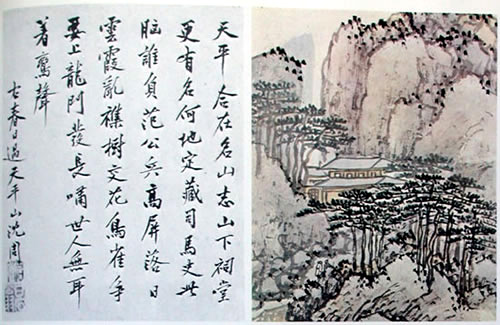 天平合在名山志山下祠堂
更有名何地定藏司馬史此
胸誰負范公兵高屏落日
雲霞亂襍樹交花鳥雀爭
要上龍門發長嘯世人無耳
著鸞聲
右春日過天平山沈周